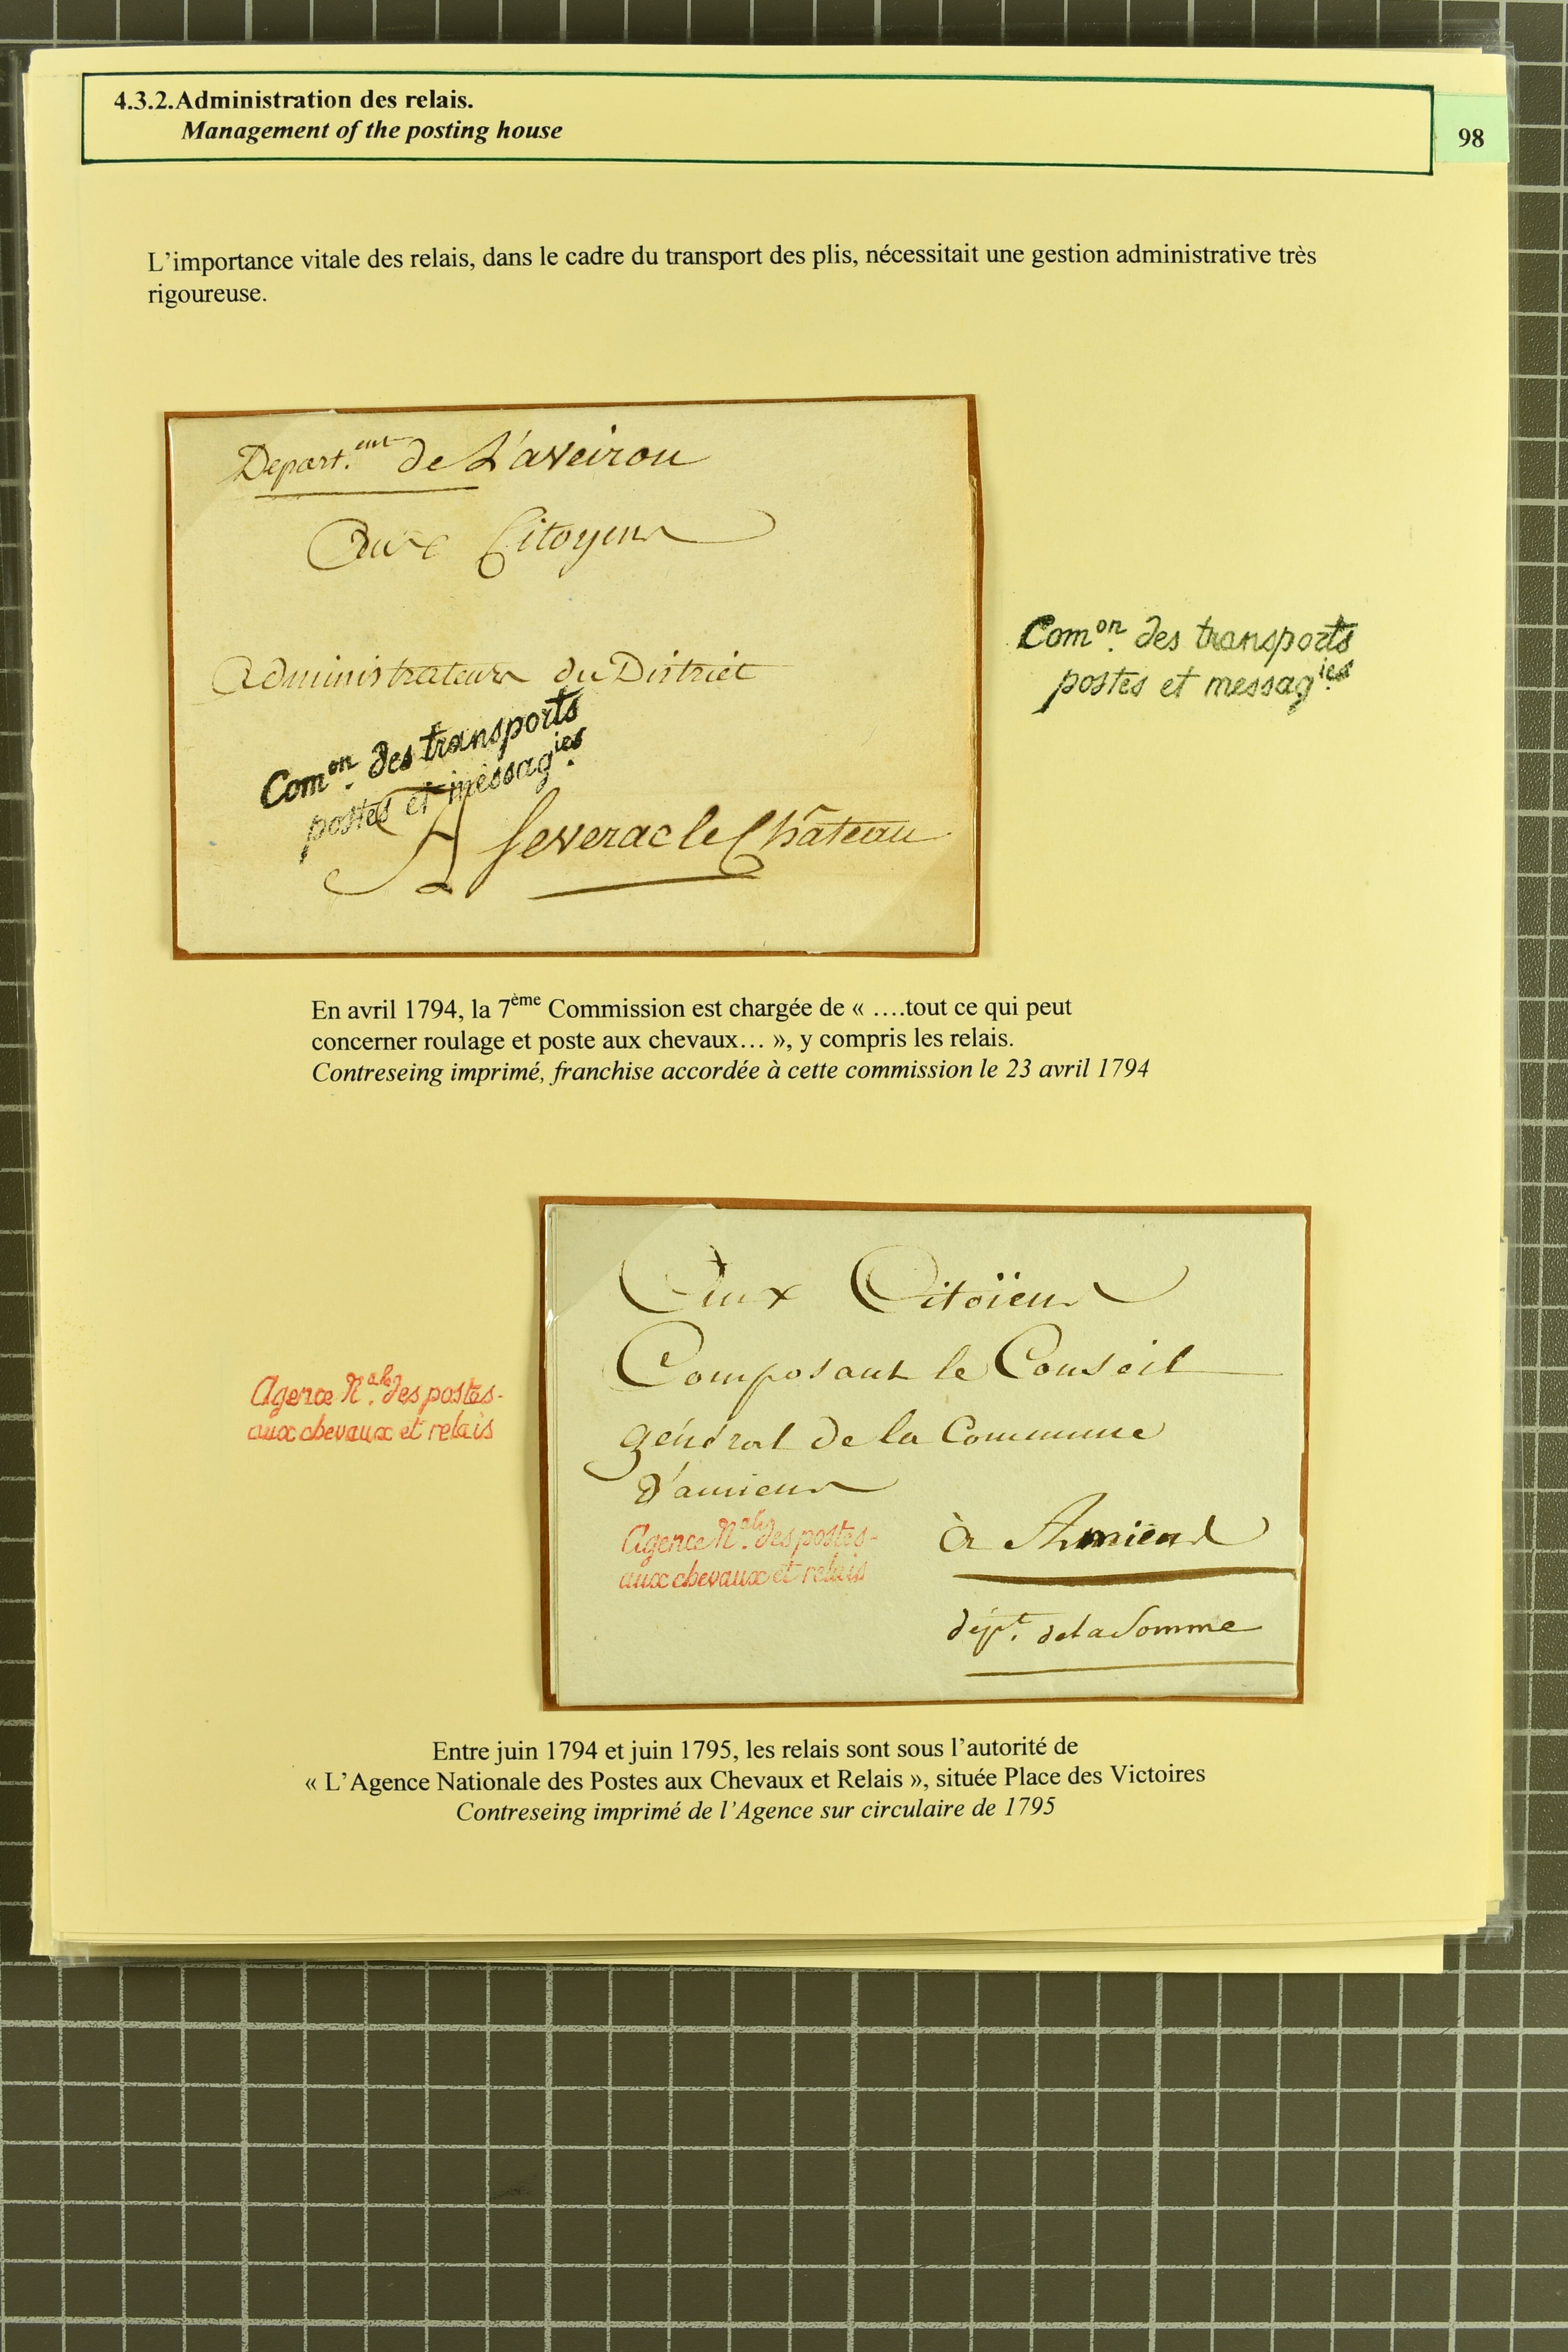 4.3.2.Administration des relais.
Management of the posting house
98
L'importance vitale des relais, dans le cadre du transport des plis, nécessitait une gestion administrative très
rigoureuse.
Depart.ent de L'aveirou
Aux Citoyens
Administrateurs du District
Comon. des transports
postes et messagies.
A Severac le Château
Comon. des transports
postes et messagies.
En avril 1794, la 7ème Commission est chargée de « ….tout ce qui peut
concerner roulage et poste aux chevaux… », y compris les relais.
Contreseing imprimé, franchise accordée à cette commission le 23 avril 1794
Aux Citoïens
Composant le Conseil
général de la Commune
d'amiens
Agence N.ale des postes-
aux chevaux et relais
à Amiens
dépt. de la Somme
Agence N.ale des postes-
aux chevaux et relais
Entre juin 1794 et juin 1795, les relais sont sous l'autorité de
« L'Agence Nationale des Postes aux Chevaux et Relais », située Place des Victoires
Contreseing imprimé de l'Agence sur circulaire de 1795